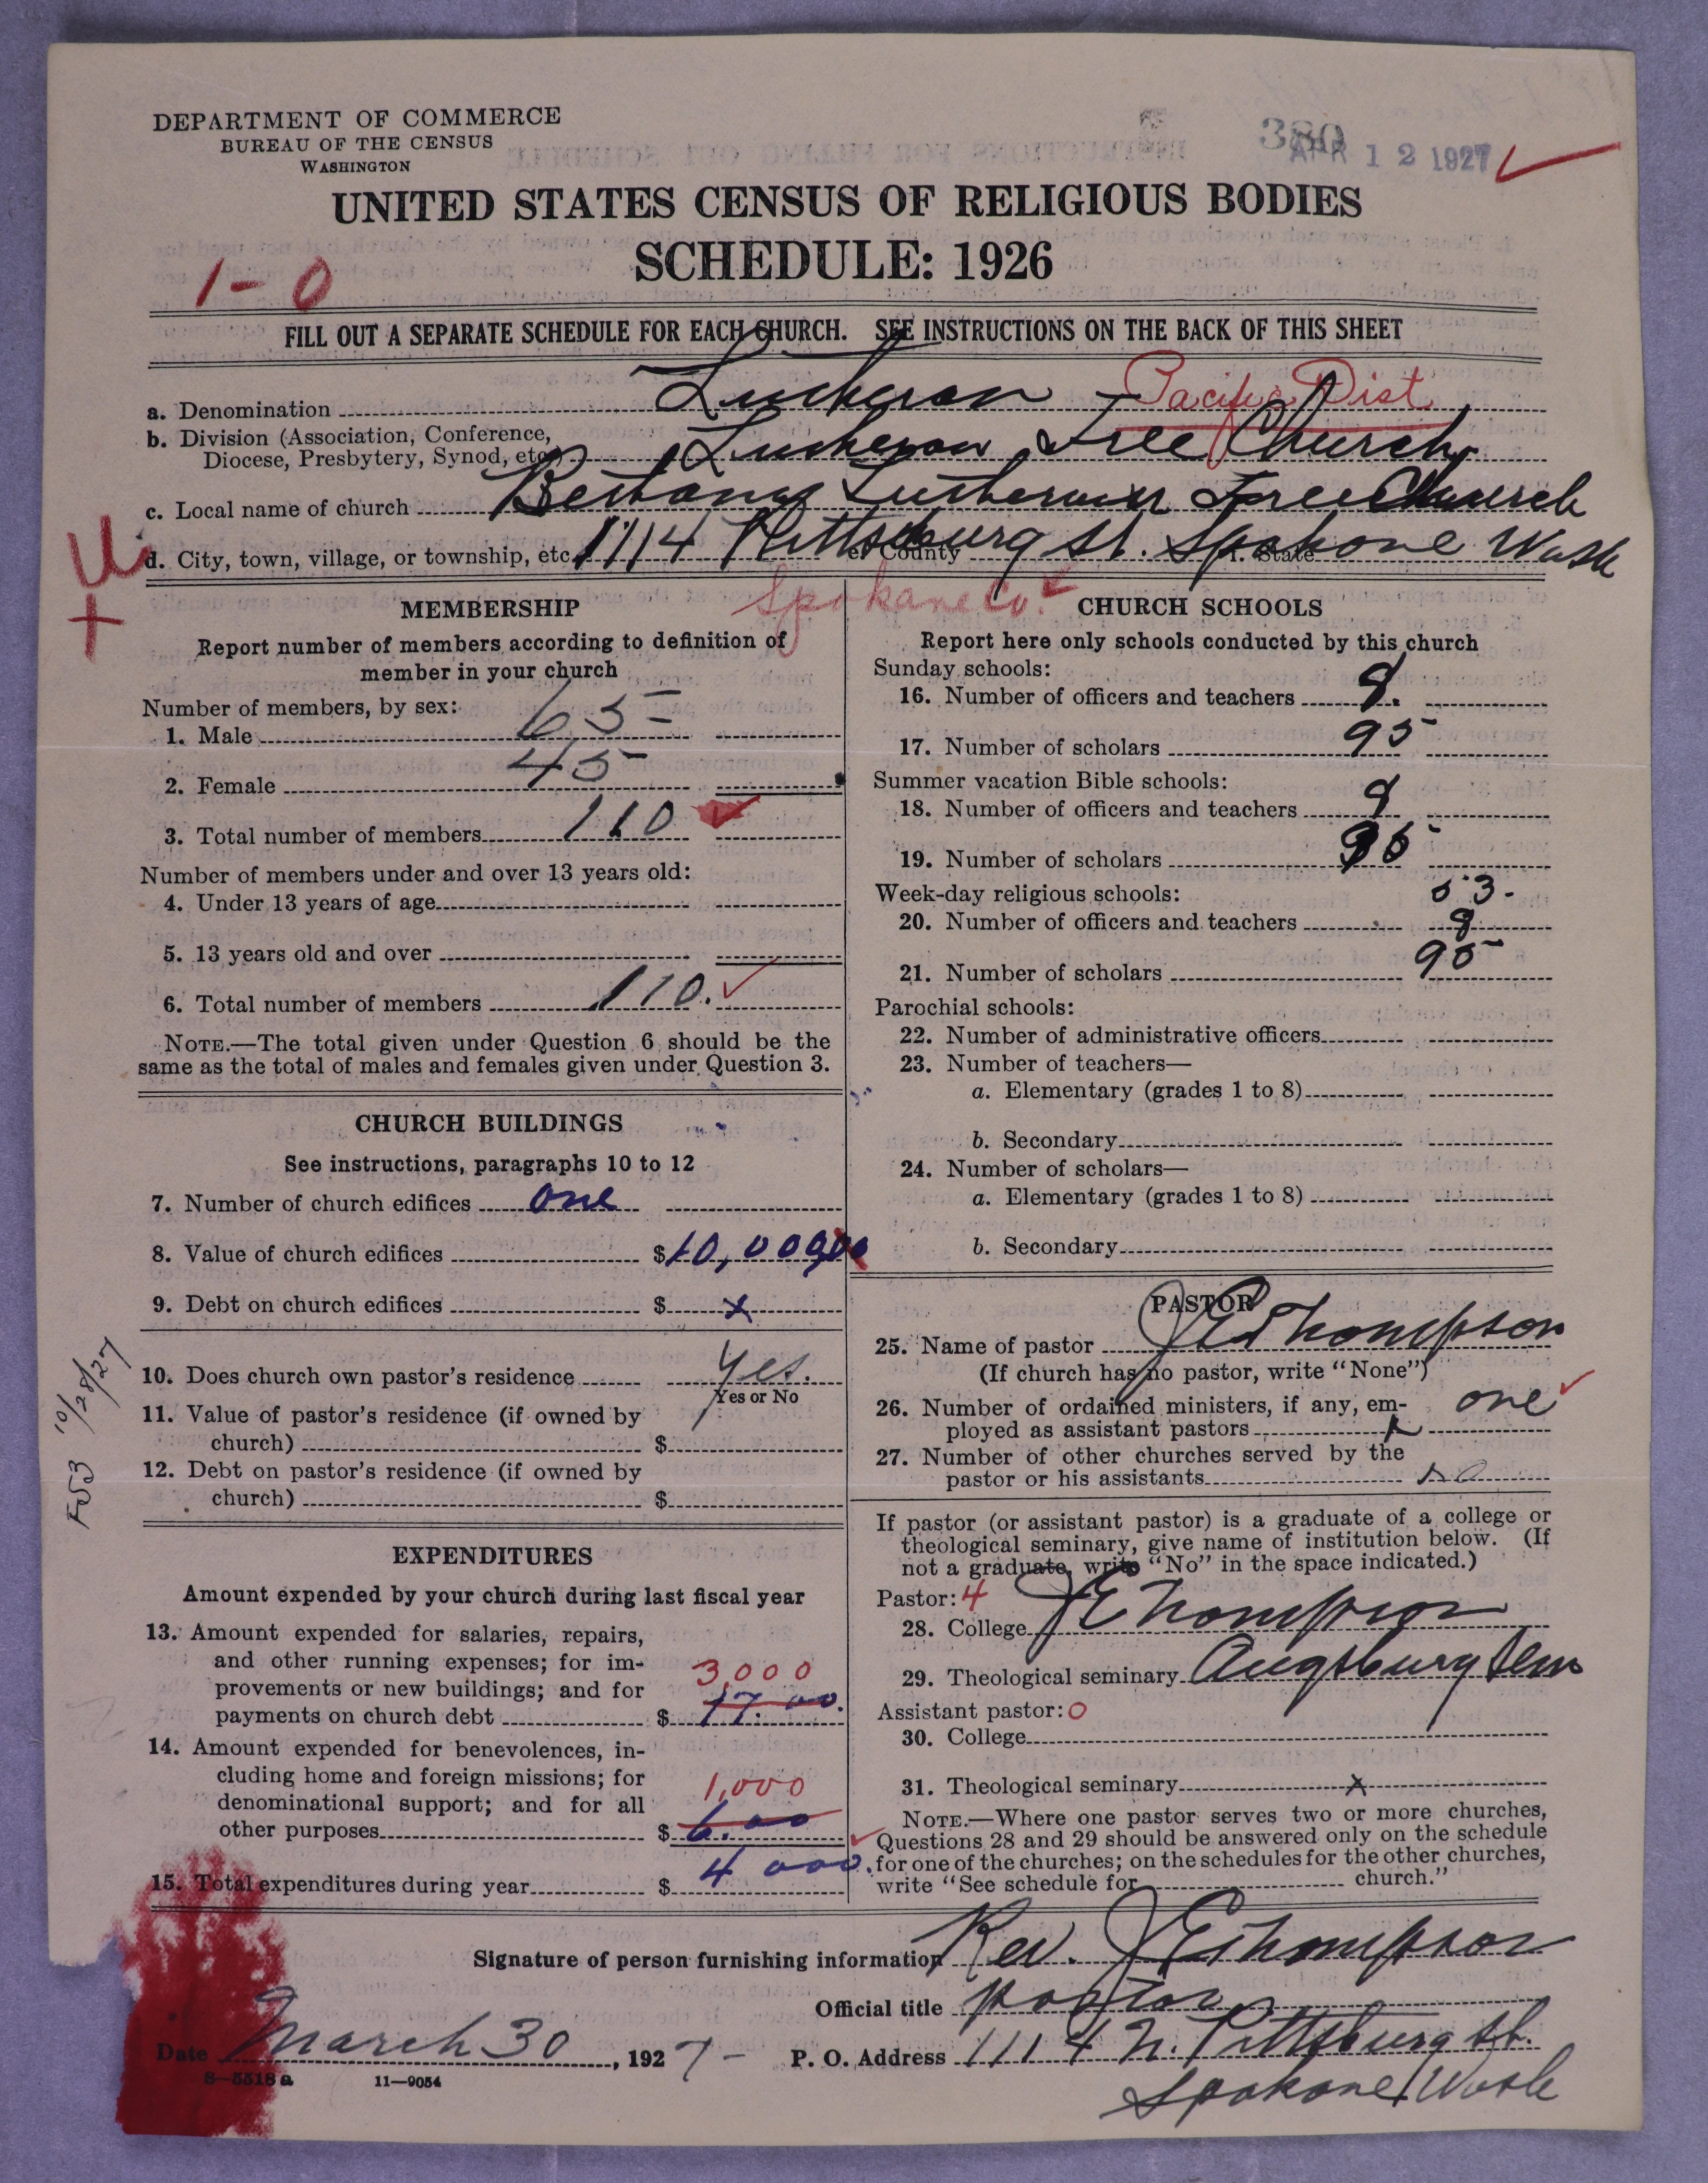 DEPARTMENT OF COMMERCE
BUREAU OF THE CENSUS
WASHINGTON
380
APR 12 1927
UNITED STATES CENSUS OF RELIGIOUS BODIES
SCHEDULE: 1926
1-0
FILL OUT A SEPARATE SCHEDULE FOR EACH CHURCH. SEE INSTRUCTIONS ON THE BACK OF THIS SHEET
a. Denomination Lutheran - Pacific Dist
b. Division (Association, Conference,
Diocese, Presbytery, Synod, etc.) Lutheran Free Church
c. Local name of church Bethany Lutheran Free Church
d. City, town, village, or township, etc. 1114 Pittsburg St. e. County Spokane f. State Wash
Spokane Co.
MEMBERSHIP
Report number of members according to definition of
member in your church
Number of members, by sex:
1. Male 65
2. Female 45
3. Total number of members 110
Number of members under and over 13 years old:
4. Under 13 years of age
5. 13 years old and over
6. Total number of members 110.
NOTE.—The total given under Question 6 should be the
same as the total of males and females given under Question 3.
CHURCH BUILDINGS
See instructions, paragraphs 10 to 12
7. Number of church edifices one
8. Value of church edifices $10,000
9. Debt on church edifices $ x
10. Does church own pastor's residence Yes.
Yes or No
11. Value of pastor's residence (if owned by
church) $
12. Debt on pastor's residence (if owned by
church) $
10/28/27
EXPENDITURES
Amount expended by your church during last fiscal year
13. Amount expended for salaries, repairs,
and other running expenses; for im-
provements or new buildings; and for 3,000
payments on church debt $ 17.00.
14. Amount expended for benevolences, in-
cluding home and foreign missions; for 1,000
denominational support; and for all
other purposes $ 6.00
15. Total expenditures during year $ 4 000.
CHURCH SCHOOLS
Report here only schools conducted by this church
Sunday schools:
16. Number of officers and teachers 9.
17. Number of scholars 95
Summer vacation Bible schools:
18. Number of officers and teachers 9
19. Number of scholars
Week-day religious schools: 53-
20. Number of officers and teachers 9
21. Number of scholars 95
Parochial schools:
22. Number of administrative officers
23. Number of teachers—
a. Elementary (grades 1 to 8)
b. Secondary
24. Number of scholars—
a. Elementary (grades 1 to 8)
b. Secondary
PASTOR
25. Name of pastor J E Thompson
(If church has no pastor, write "None")
26. Number of ordained ministers, if any, em- one
ployed as assistant pastors x
27. Number of other churches served by the
pastor or his assistants no
If pastor (or assistant pastor) is a graduate of a college or
theological seminary, give name of institution below. (If
not a graduate, write "No" in the space indicated.)
Pastor: 4
28. College J E Thompson
29. Theological seminary Augsburg Sem
Assistant pastor: 0
30. College
31. Theological seminary x
NOTE.—Where one pastor serves two or more churches,
Questions 28 and 29 should be answered only on the schedule
for one of the churches; on the schedules for the other churches,
write "See schedule for church."
Signature of person furnishing information Rev. J E Thompson
Official title pastor
Date March 30, 1927- P. O. Address 1114 N. Pittsburg St.
8-5518 a 11—9054
Spokane Wash